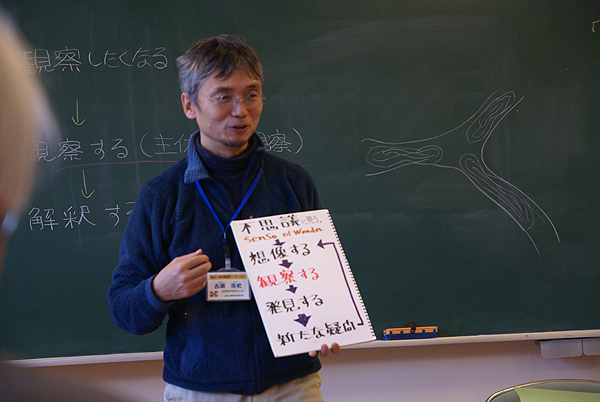 観察したくなる
観察する(主体 察)
解釈する
不思議に思う。
SenSe of Wonder
想像する
観察する
発見する
新たな疑問
古瀬 浩史